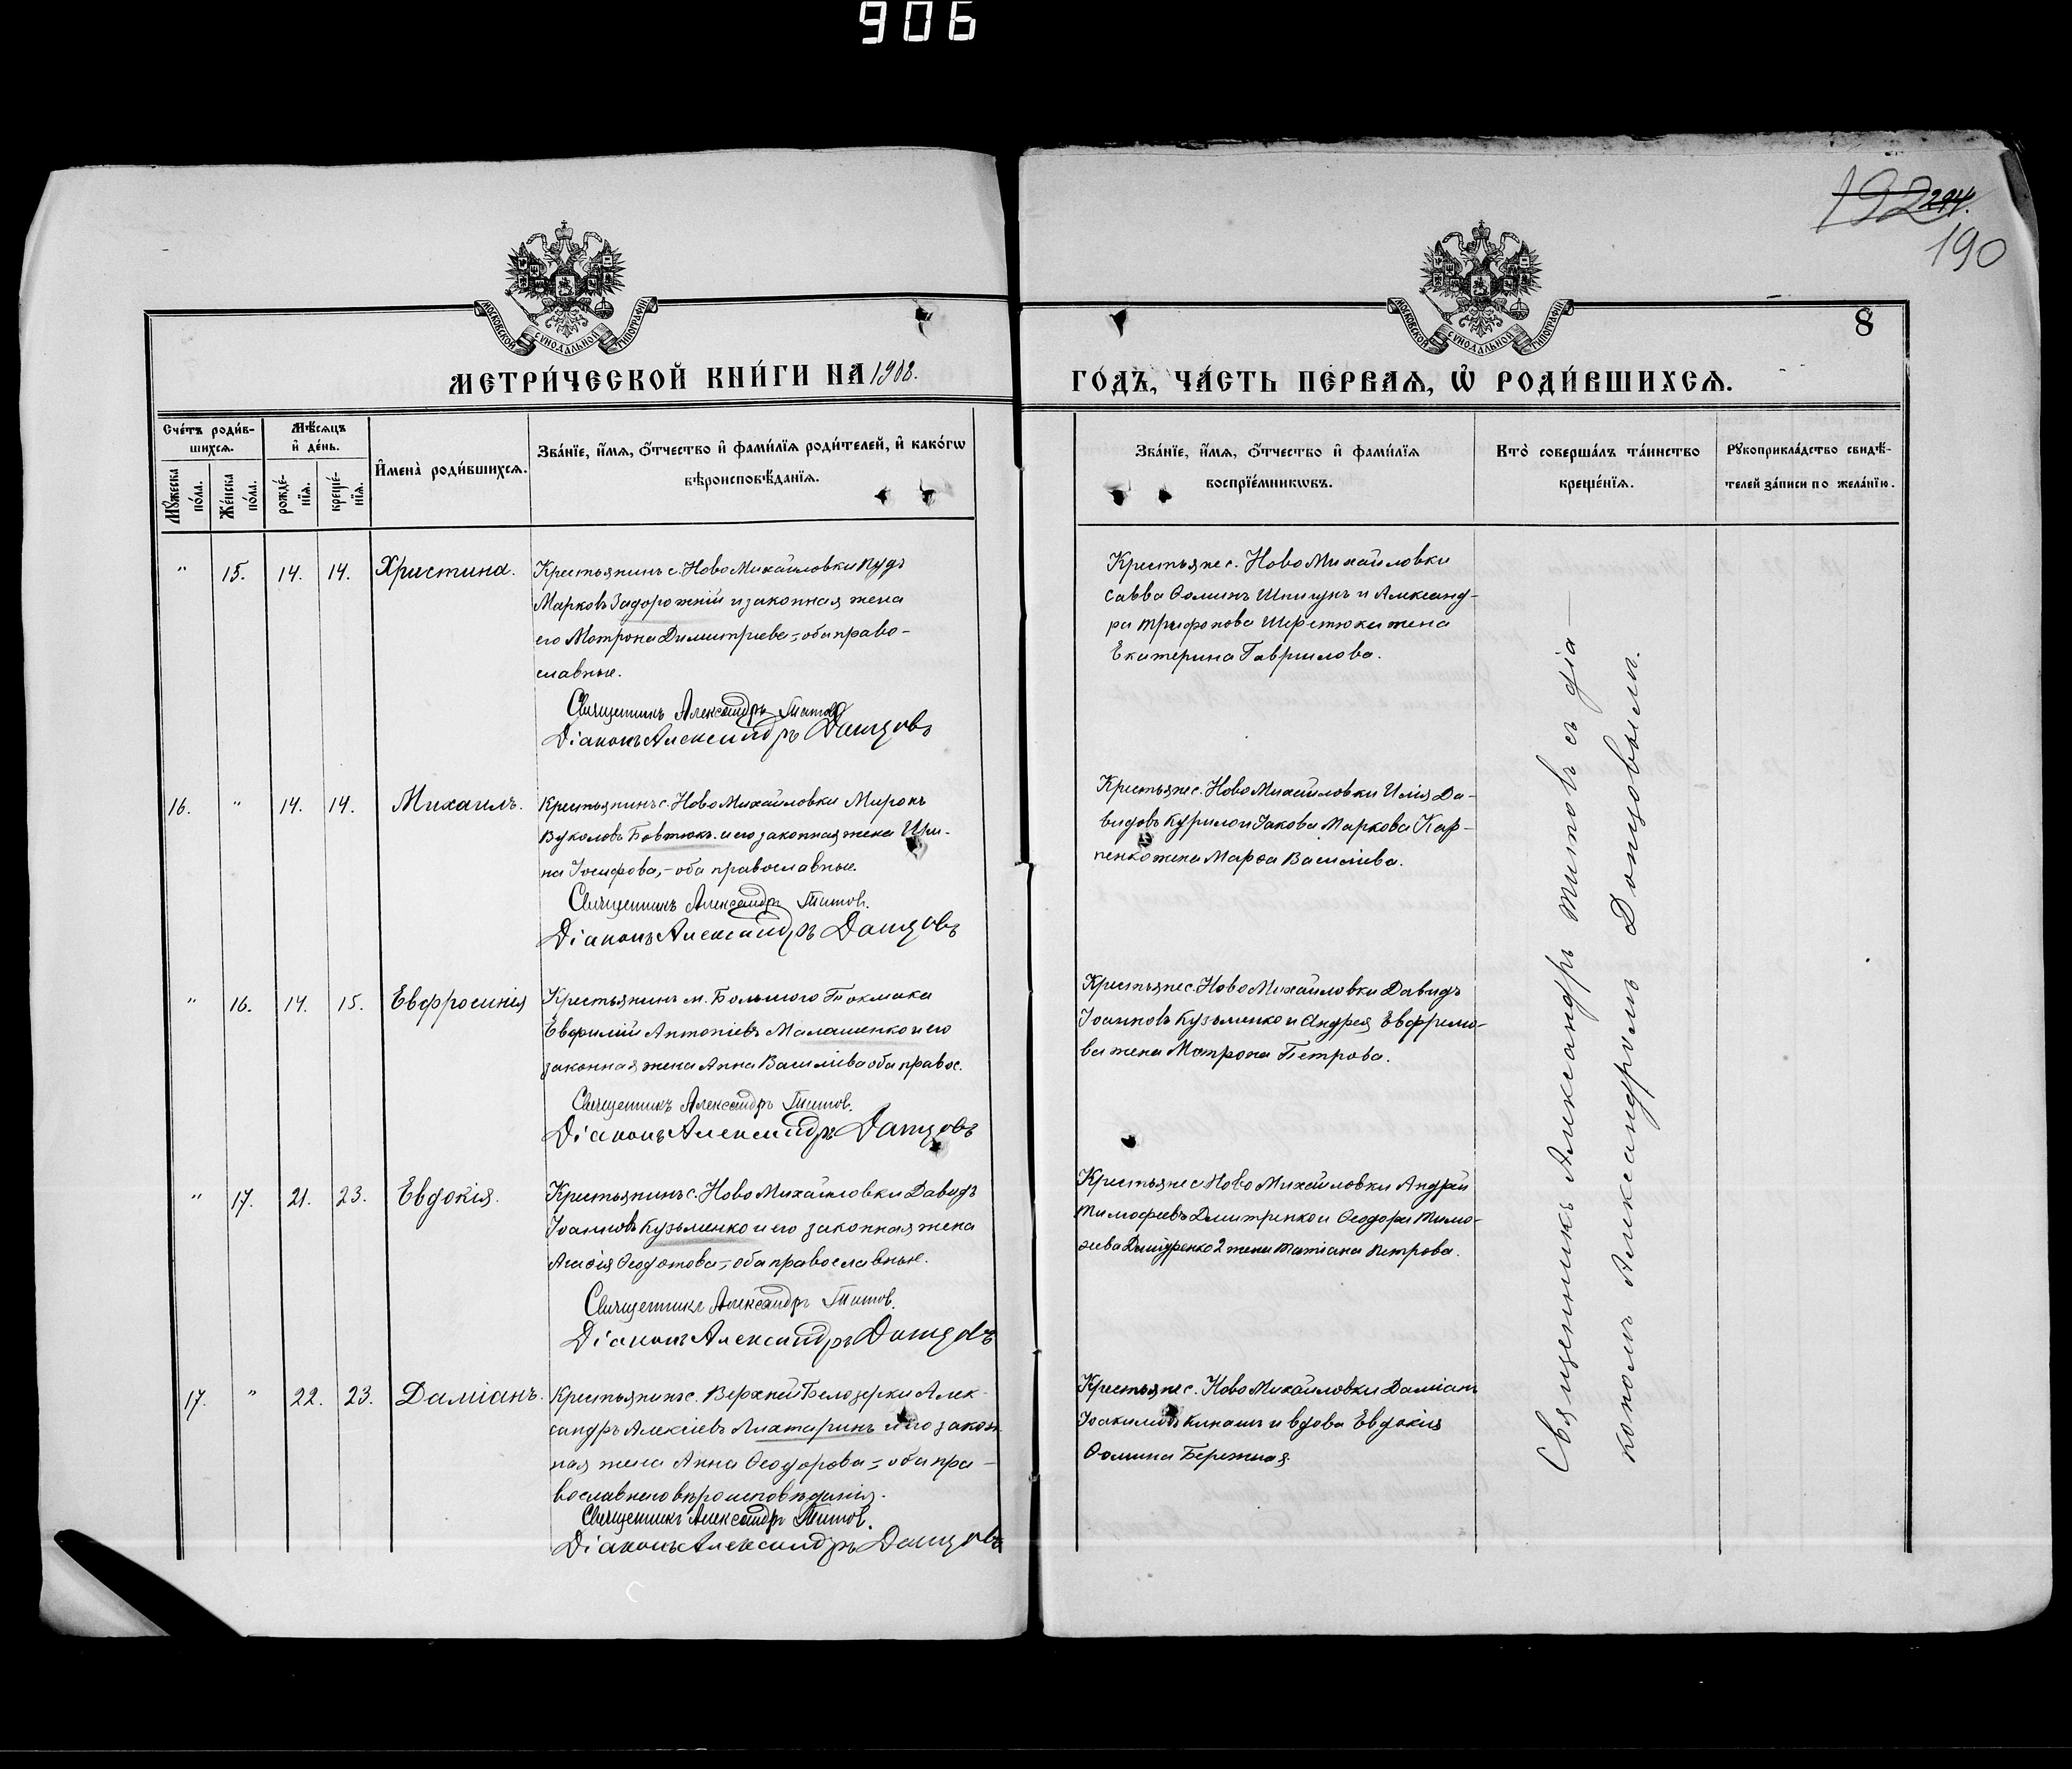 906
192 244.
190
8
МОСКОВСКОЙ СѴНОДАЛЬНОЙ ТИПОГРАФІИ
МОСКОВСКОЙ СѴНОДАЛЬНОЙ ТИПОГРАФІИ
МЕТРИ́ЧЕСКОЙ КНИ́ГИ НА 1908.
ГО́ДЪ, ЧА́СТЬ ПЕ́РВАѦ, Ѡ҆ РОДИ́ВШИХСѦ.
Сче́тъ роди́в-
шихсѧ.
Мꙋ́жеска по́ла.
Же́нска по́ла.
Мѣ́сѧцъ
и҆ де́нь.
рожде́-
нїѧ.
креще́-
нїѧ.
И҆мена̀ роди́вшихсѧ.
Зва́нїе, и҆́мѧ, ѻ҆́тчество и҆ фами́лїѧ роди́телей, и҆ како́гѡ
вѣроисповѣ́данїѧ.
Зва́нїе, и҆́мѧ, ѻ҆́тчество и҆ фами́лїѧ
воспрїе́мникѡвъ.
Кто̀ соверша́лъ та́инство
креще́нїѧ.
Рꙋкоприкла́дство свидѣ́-
телей за́писи по жела́нїю.
" 15. 14. 14. Христина.
Крестьянинъ с. Ново Михайловки
Марковъ Задорожній и законная жена
его Мотрона Димитриева - оба право-
славные.
Священникъ Александръ Титов
Діаконъ Александръ Донцовъ
Крестьяне с. Ново Михайловки
Савва Ѳоминъ Шпигунъ и Александ-
ра Трифонова жена
Екатерина Гаврилова.
16. " 14. 14. Михаилъ.
Крестьянинъ с. Ново Михайловки Миронъ
Вуколовъ Бовтюкъ и его законная жена Ири-
на Іосифова, - оба православные.
Священникъ Александръ Титов.
Діаконъ Александръ Донцовъ
Крестьяне с. Ново Михайловки Илія Да-
видовъ Курило и Іакова Маркова Кар-
пенко жена Марѳа Василіева.
" 16. 14. 15. Евфросинія
Крестьянинъ м. Большого Токмака
Евфимій Антоніевъ Малашенко и его
законная жена Анна Василіева оба правос.
Священникъ Александръ Титов.
Діаконъ Александръ Донцовъ
Крестьяне с. Ново Михайловки Давидъ
Іоанновъ Кузьменко и Андрея Евфремо-
ва жена Мотрона Петрова.
" 17. 21. 23. Евдокія.
Крестьянинъ с. Ново Михайловки Давидъ
Іоанновъ Кузьменко и его законная жена
Агаѳія Ѳеодотова, - оба православные.
Священникъ Александръ Титов.
Діаконъ Александръ Донцовъ
Крестьяне с. Ново Михайловки Андрей
Тимофеевъ Дмитренко и Ѳеодора Тимо-
ѳеева 2 жена Татіана Петрова.
17. " 22. 23. Даміанъ.
Крестьянинъ с. Верхней Белозерки Алек-
сандръ Алексіевъ и его закон
ная жена Анна Ѳеодорова - оба пра-
вославнаго вѣроисповѣданія.
Священникъ Александръ Титов.
Діаконъ Александръ Донцовъ
Крестьяне с. Ново Михайловки Даміанъ
Іоакимовъ Кинашъ и вдова Евдокія
Ѳомина Бережная.
Священникъ Александръ Титовъ съ діа-
кономъ Александромъ Донцовымъ.